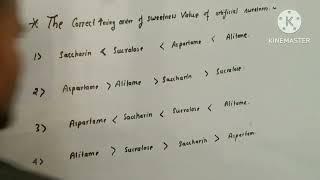 * The Correct ↑ing order of sweetness Value of artificial
KINEMASTER
1) Saccharin < Sucralose < Aspartame < Alitame.
2) Aspartame > Alitame > Saccharin > Sucralose.
3) Aspartame < Saccharin < Sucralose < Alitame.
4) Alitame > Sucralose > Saccharin > Aspartam.